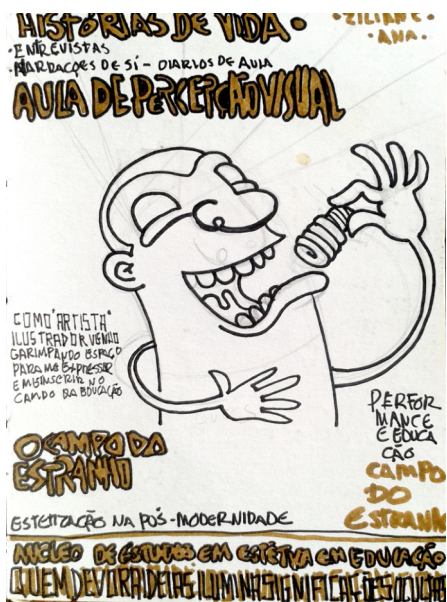 HISTÓRIAS DE VIDA •
• ZILIANE •
• ANA •
• ENTREVISTAS
• NARRAÇÕES DE SI - DIARIOS DE AULA
AULA DE PERCEPÇÃO VISUAL
COMO "ARTISTA"
ILUSTRADOR VENHO
GARIMPANDO ESPAÇO
PARA ME EXPRESSAR
E ME INSCRIR NO
CAMPO DA EDUCAÇÃO
O CAMPO DO
ESTRANHO
PERFOR
MANCE
E EDUCA
ÇÃO
CAMPO
DO
ESTRANHO
ESTETIZAÇÃO NA PÓS-MODERNIDADE
NUCLEO DE ESTUDOS EM ESTÉTICA EM EDUCAÇÃO
QUEM DEVORA IDEIAS ILUMINA SIGNIFICAÇÕES OCULTAS